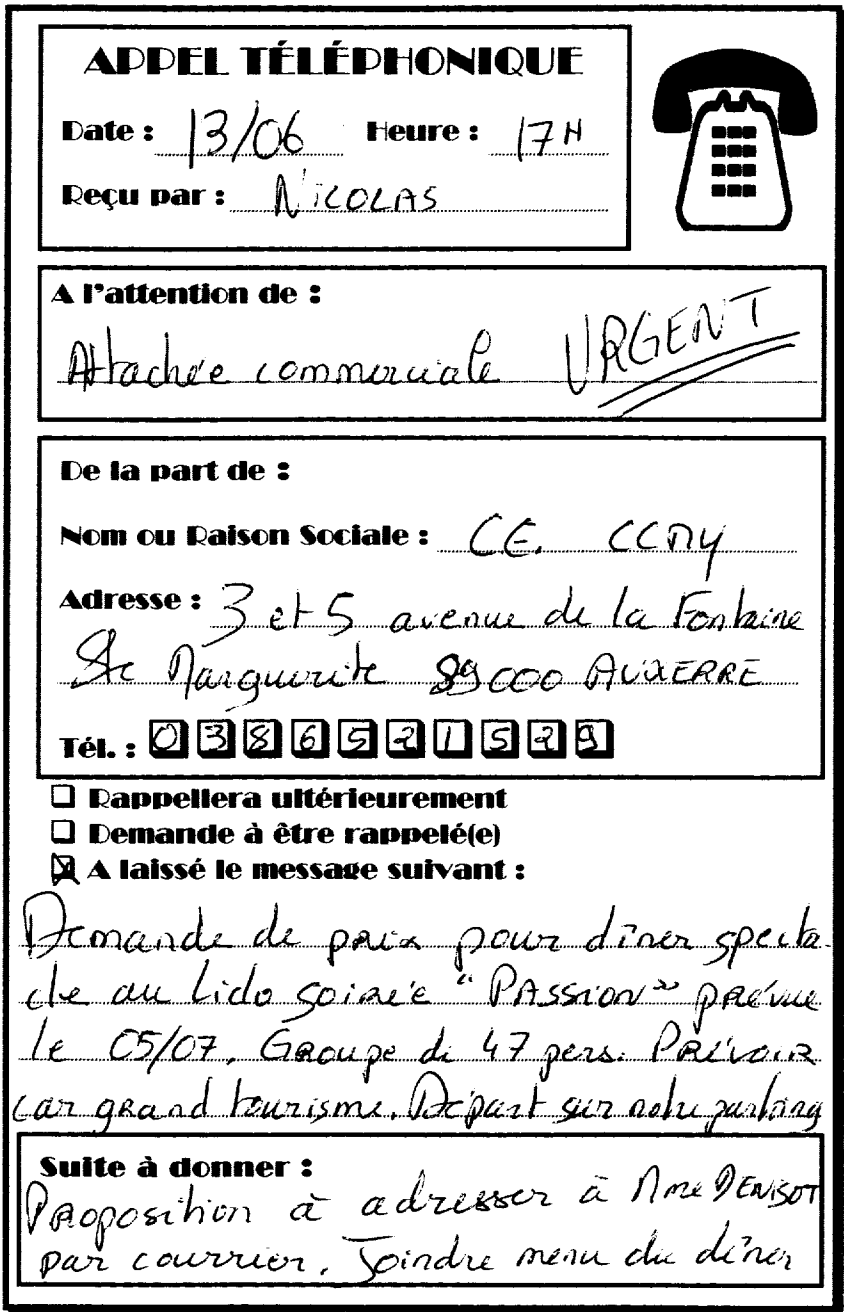 APPEL TÉLÉPHONIQUE
Date : 13/06 Heure : 17H
Reçu par : NICOLAS
A l'attention de :
Attachée commerciale URGENT
De la part de :
Nom ou Raison Sociale : CE. CCMY
Adresse : 3 et 5 avenue de la Fontaine
Ste Marguerite 89000 AUXERRE
Tél. : 0386521529
Rappellera ultérieurement
Demande à être rappelé(e)
A laissé le message suivant :
Demande de prix pour dîner specta-
cle au Lido soirée "PASSION" prévue
le 05/07. Groupe de 47 pers. Prévoir
car grand tourisme. Départ sur notre parking
Suite à donner :
Proposition à adresser à Mme DENISOT
par courrier. Joindre menu du dîner